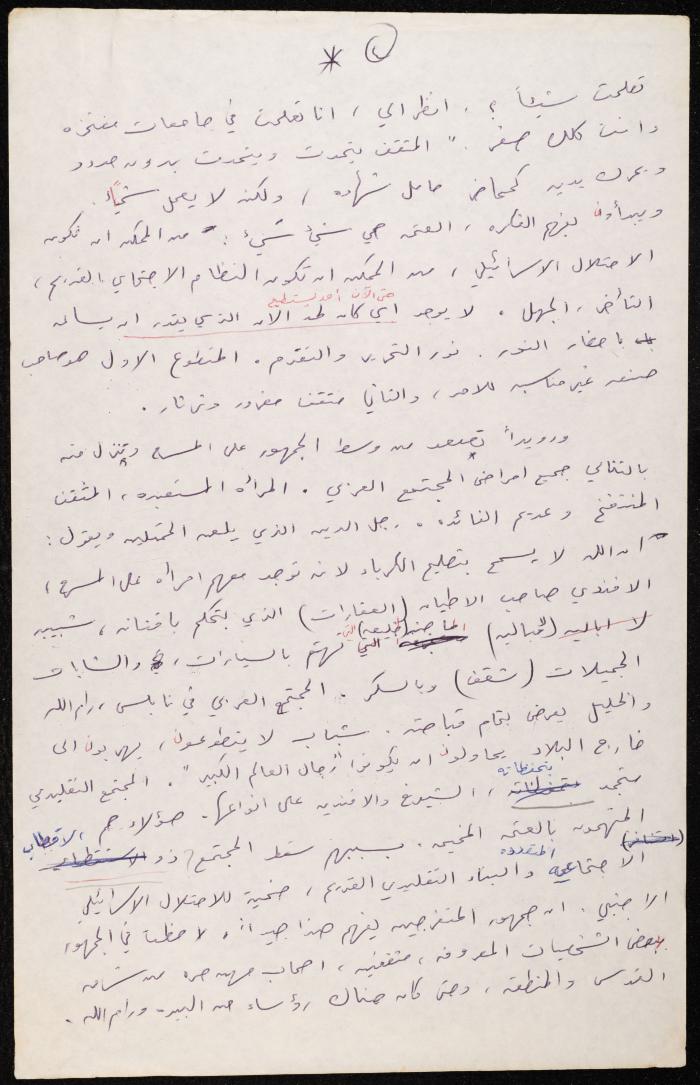 ٢
*
تعلمت شيئاً ؟ ، انظر الي ، انا تعلمت في جامعات مفتخره
وانت كلك صفر . " المثقف يتحدث ويتحدث بدون حدود
ويحرك يديه كمحاضر حامل شهاده ، ولكنه لا يعمل شيئاً .
ويبدأون بفهم الفكره ، العتمه هي شيء سيّء : من الممكن ان تكون
الاحتلال الاسرائيلي ، من الممكن ان تكون النظام الاجتماعي القديم ،
التأخر ، الجهل . لا يوجد اي كان لحد الان الذي يقدر ان يساعد
حتى الآن أحد يستطيع
باحضار النور . نور التحرير والتقدم . المتطوع الاول هو صاحب
صنعه غير مناسبه للامر ، والثاني مثقف مغرور وثرثار .
ورويداً تصعد من وسط الجمهور على المسرح وتنزل منه
بالتتالي جميع امراض المجتمع العربي . المرأه المستعبده ، المثقف
المنتفخ وعديم الفائده . رجل الدين الذي يلعن الممثلين ويقول :
" ان الله لا يسمح بتصليح الكهرباء لانه توجد معهم امرأه على المسرح ،
الافندي صاحب الاطيان (العقارات) الذي يتحكم باقنانه ، شبيبه
لا اباليه (لامباليه) الماجنه (الخليعة) التي تهتم بالسيارات ، والشابات
الجميلات (شقف) وبالسكر . المجتمع العربي في نابلس ، رام الله
والخليل يعرض بتمام قباحته . شباب لا يتطوعون ، يهربون الى
خارج البلاد يحاولون ان يكونوا "رجال العالم الكبير" . المجتمع التقليدي
متجمد بتحفظاته ، الشيوخ والافنديه على انواعها . هؤلاء هم
المتهمون بالعتمه المخيمه . بسببهم سقط المجتمع ذو الاقطاب
الاجتماعيه المتعدده والبناء التقليدي القديم ، ضحية للاحتلال الاسرائيلي
الاجنبي . ان جمهور المتفرجين يفهم هذا جيداً . لاحظنا في الجمهور
بعض الشخصيات المعروفه ، مثقفين ، اصحاب مهن حره من شرقي
القدس والمنطقه ، وحتى كان هناك رؤساء من البيره ورام الله .